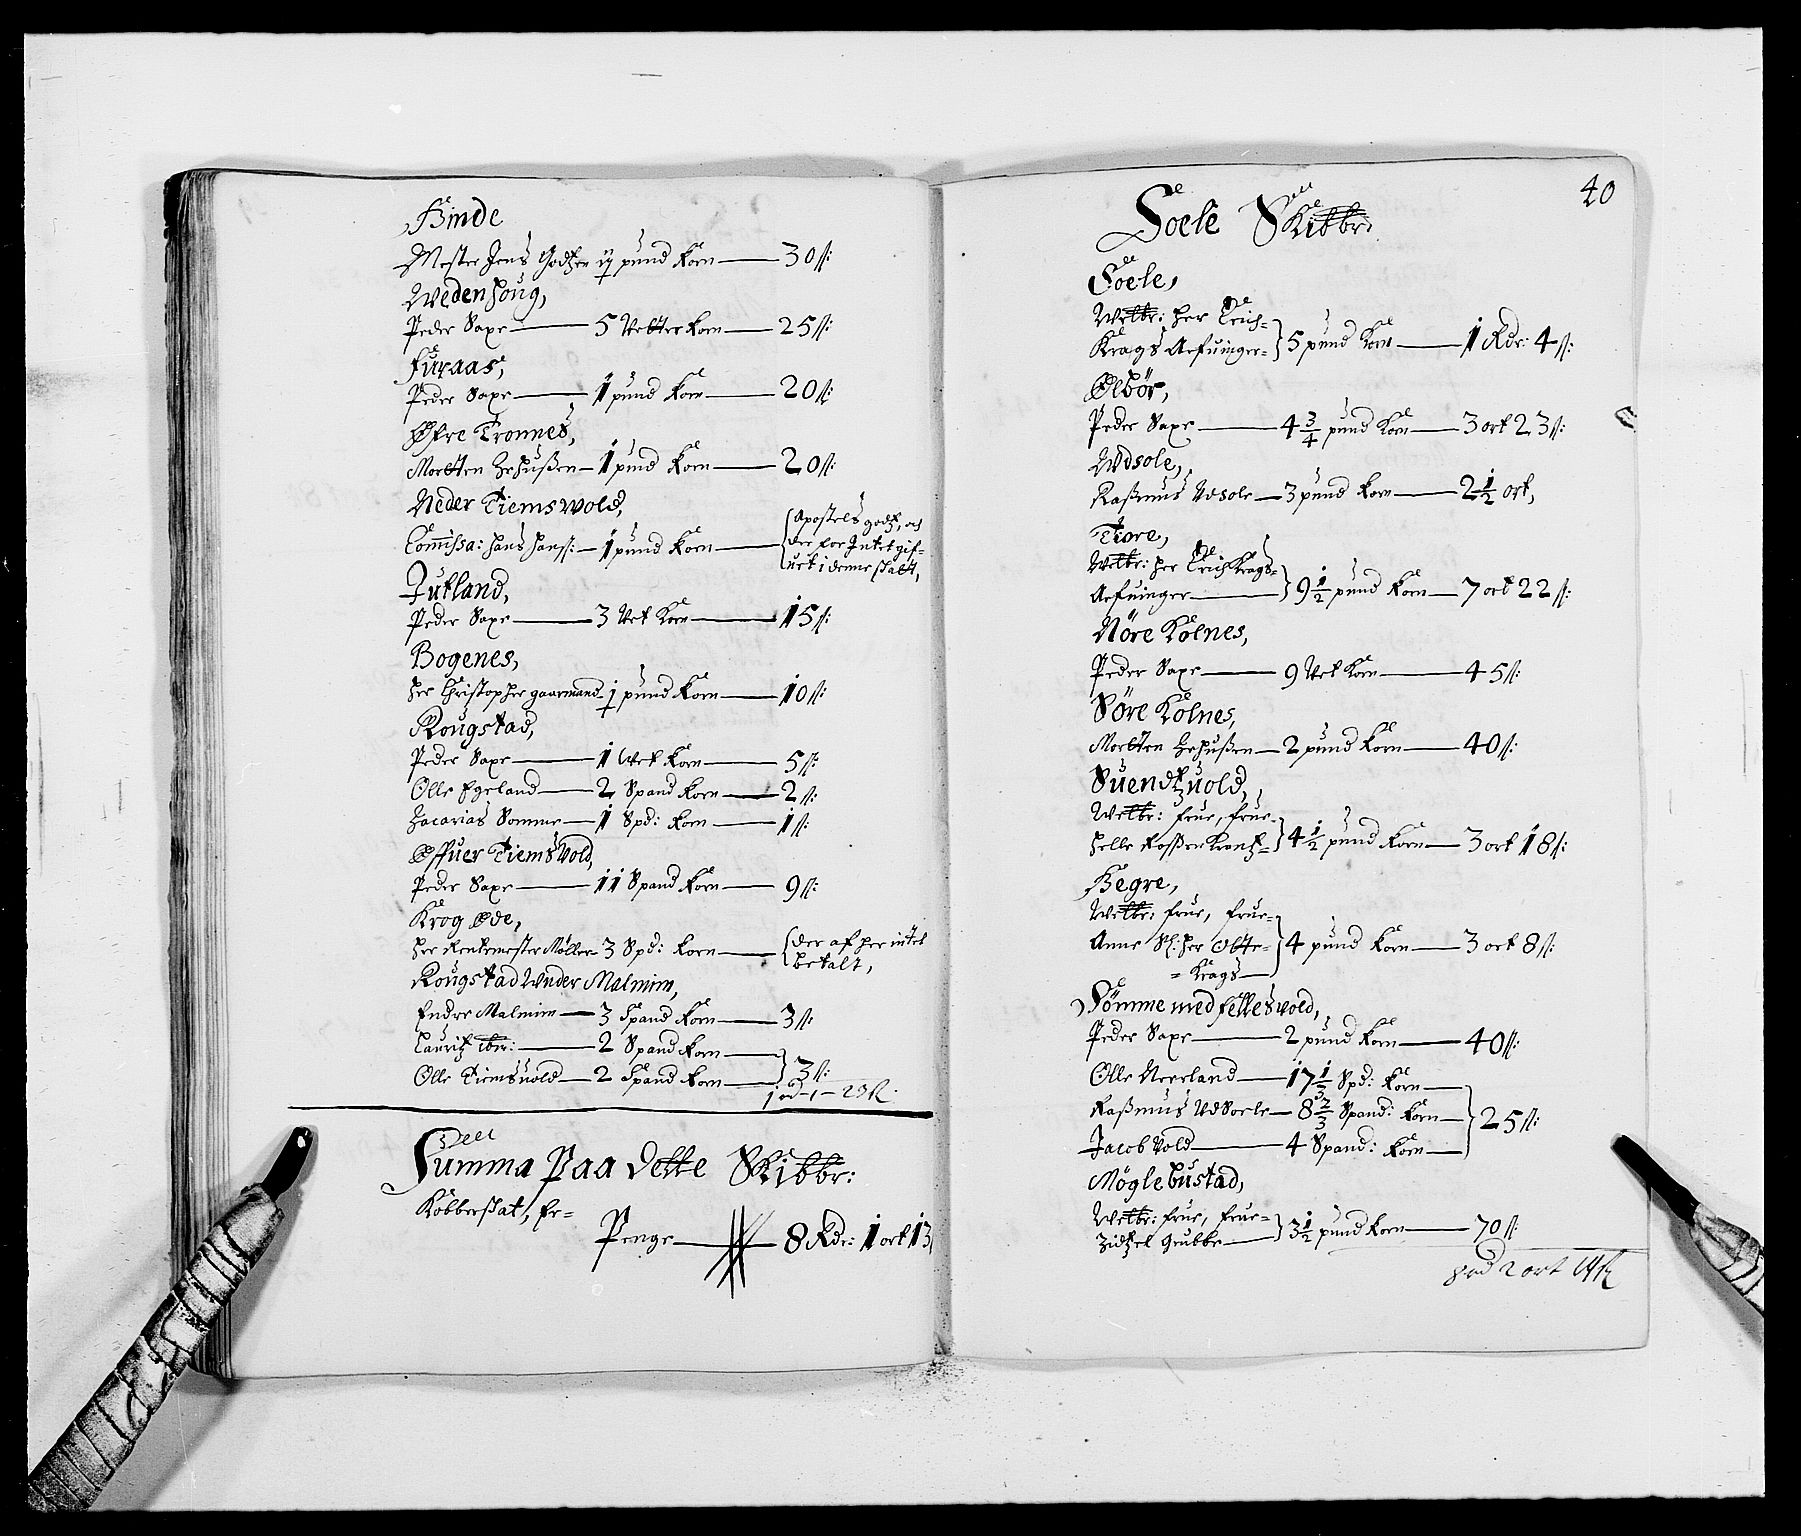 Hinde
Mester Jens Godtzen 1½ pund Korn — 30 ß:
Wedenhoug,
Peder Saxe — 5 Vetter Korn — 25 ß:
Furaas,
Peder Saxe — 1 pund Korn — 20 ß:
Øfre Tronnes,
Morten — 1 pund Korn — 20 ß:
Neder Tiemswold,
Commissa: Hans Hanß: — 1 pund Korn — Apostels godtz, och
der for Intet gif-
uet i denne skatt,
Jutland,
Peder Saxe — 3 Vet Korn — 15 ß:
Bogenes,
Her Christopher gaarmand — ½ pund Korn — 10 ß:
Rougstad,
Peder Saxe — 1 Wet Korn — 5 ß:
Olle Egeland — 2 Spand Korn — 2 ß:
Zacarias Somme — 1 Spd: Korn — 1 ß:
Øffuer Tiemsvold,
Peder Saxe — 11 Spand Korn — 9 ß:
Krog Øde,
Her Rentemester Møller — 3 Spd: Korn — der af her intet
betalt,
Rougstad Wnder Malmim,
Endre Malmim — 3 Spand Korn — 3 ß:
Lauritz ibm: — 2 Spand Korn —
Olle Tiemsuold — 2 Spand Korn — 3 ß:
23 ß
Summa Paa dette Skibbr:
Kobberskat, Er=
Penge — 8 Rdr: 1 ort 13
40
Soele Skibbr:
Soele,
Welbr: Her Erich=
Krags Arfuinger= 5 pund Korn — 1 Rdr: 4 ß:
Ølbør,
Peder Saxe — 4 3/4 pund Korn — 3 ort 23 ß:
Wdsole,
Raßmus Vdsole — 3 pund Korn — 2 1/2 ort,
Tiore,
Welbr: Her Erich Krags=
Arfuinger — 9 1/2 pund Korn — 7 ort 22 ß:
Nöre Kolnes,
Peder Saxe — 9 Vet Korn — 45 ß:
Söre Kolnes,
Morten — 2 pund Korn — 40 ß:
Suendtzuold,
Welbr: frue, frue=
Helle Roßenkrantz= 4 1/2 pund Korn — 3 ort 18 ß:
Hegre,
Welbr: frue, frue=
Anne Sl: Her Otte=
= Krags — 4 pund Korn — 3 ort 8 ß:
Sömme med felleswold,
Peder Saxe — 2 pund Korn — 40 ß:
Olle Neeland — 17 1/3 Spd: Korn —
Raßmus VdSoele — 8 2/3 Spand: Korn — 25 ß:
Jacob Vold — 4 Spand: Korn —
Möglebustad,
Welbr: frue, frue=
Zidtzel Grubbe — 3 1/2 pund Korn — 70 ß:
2 ort